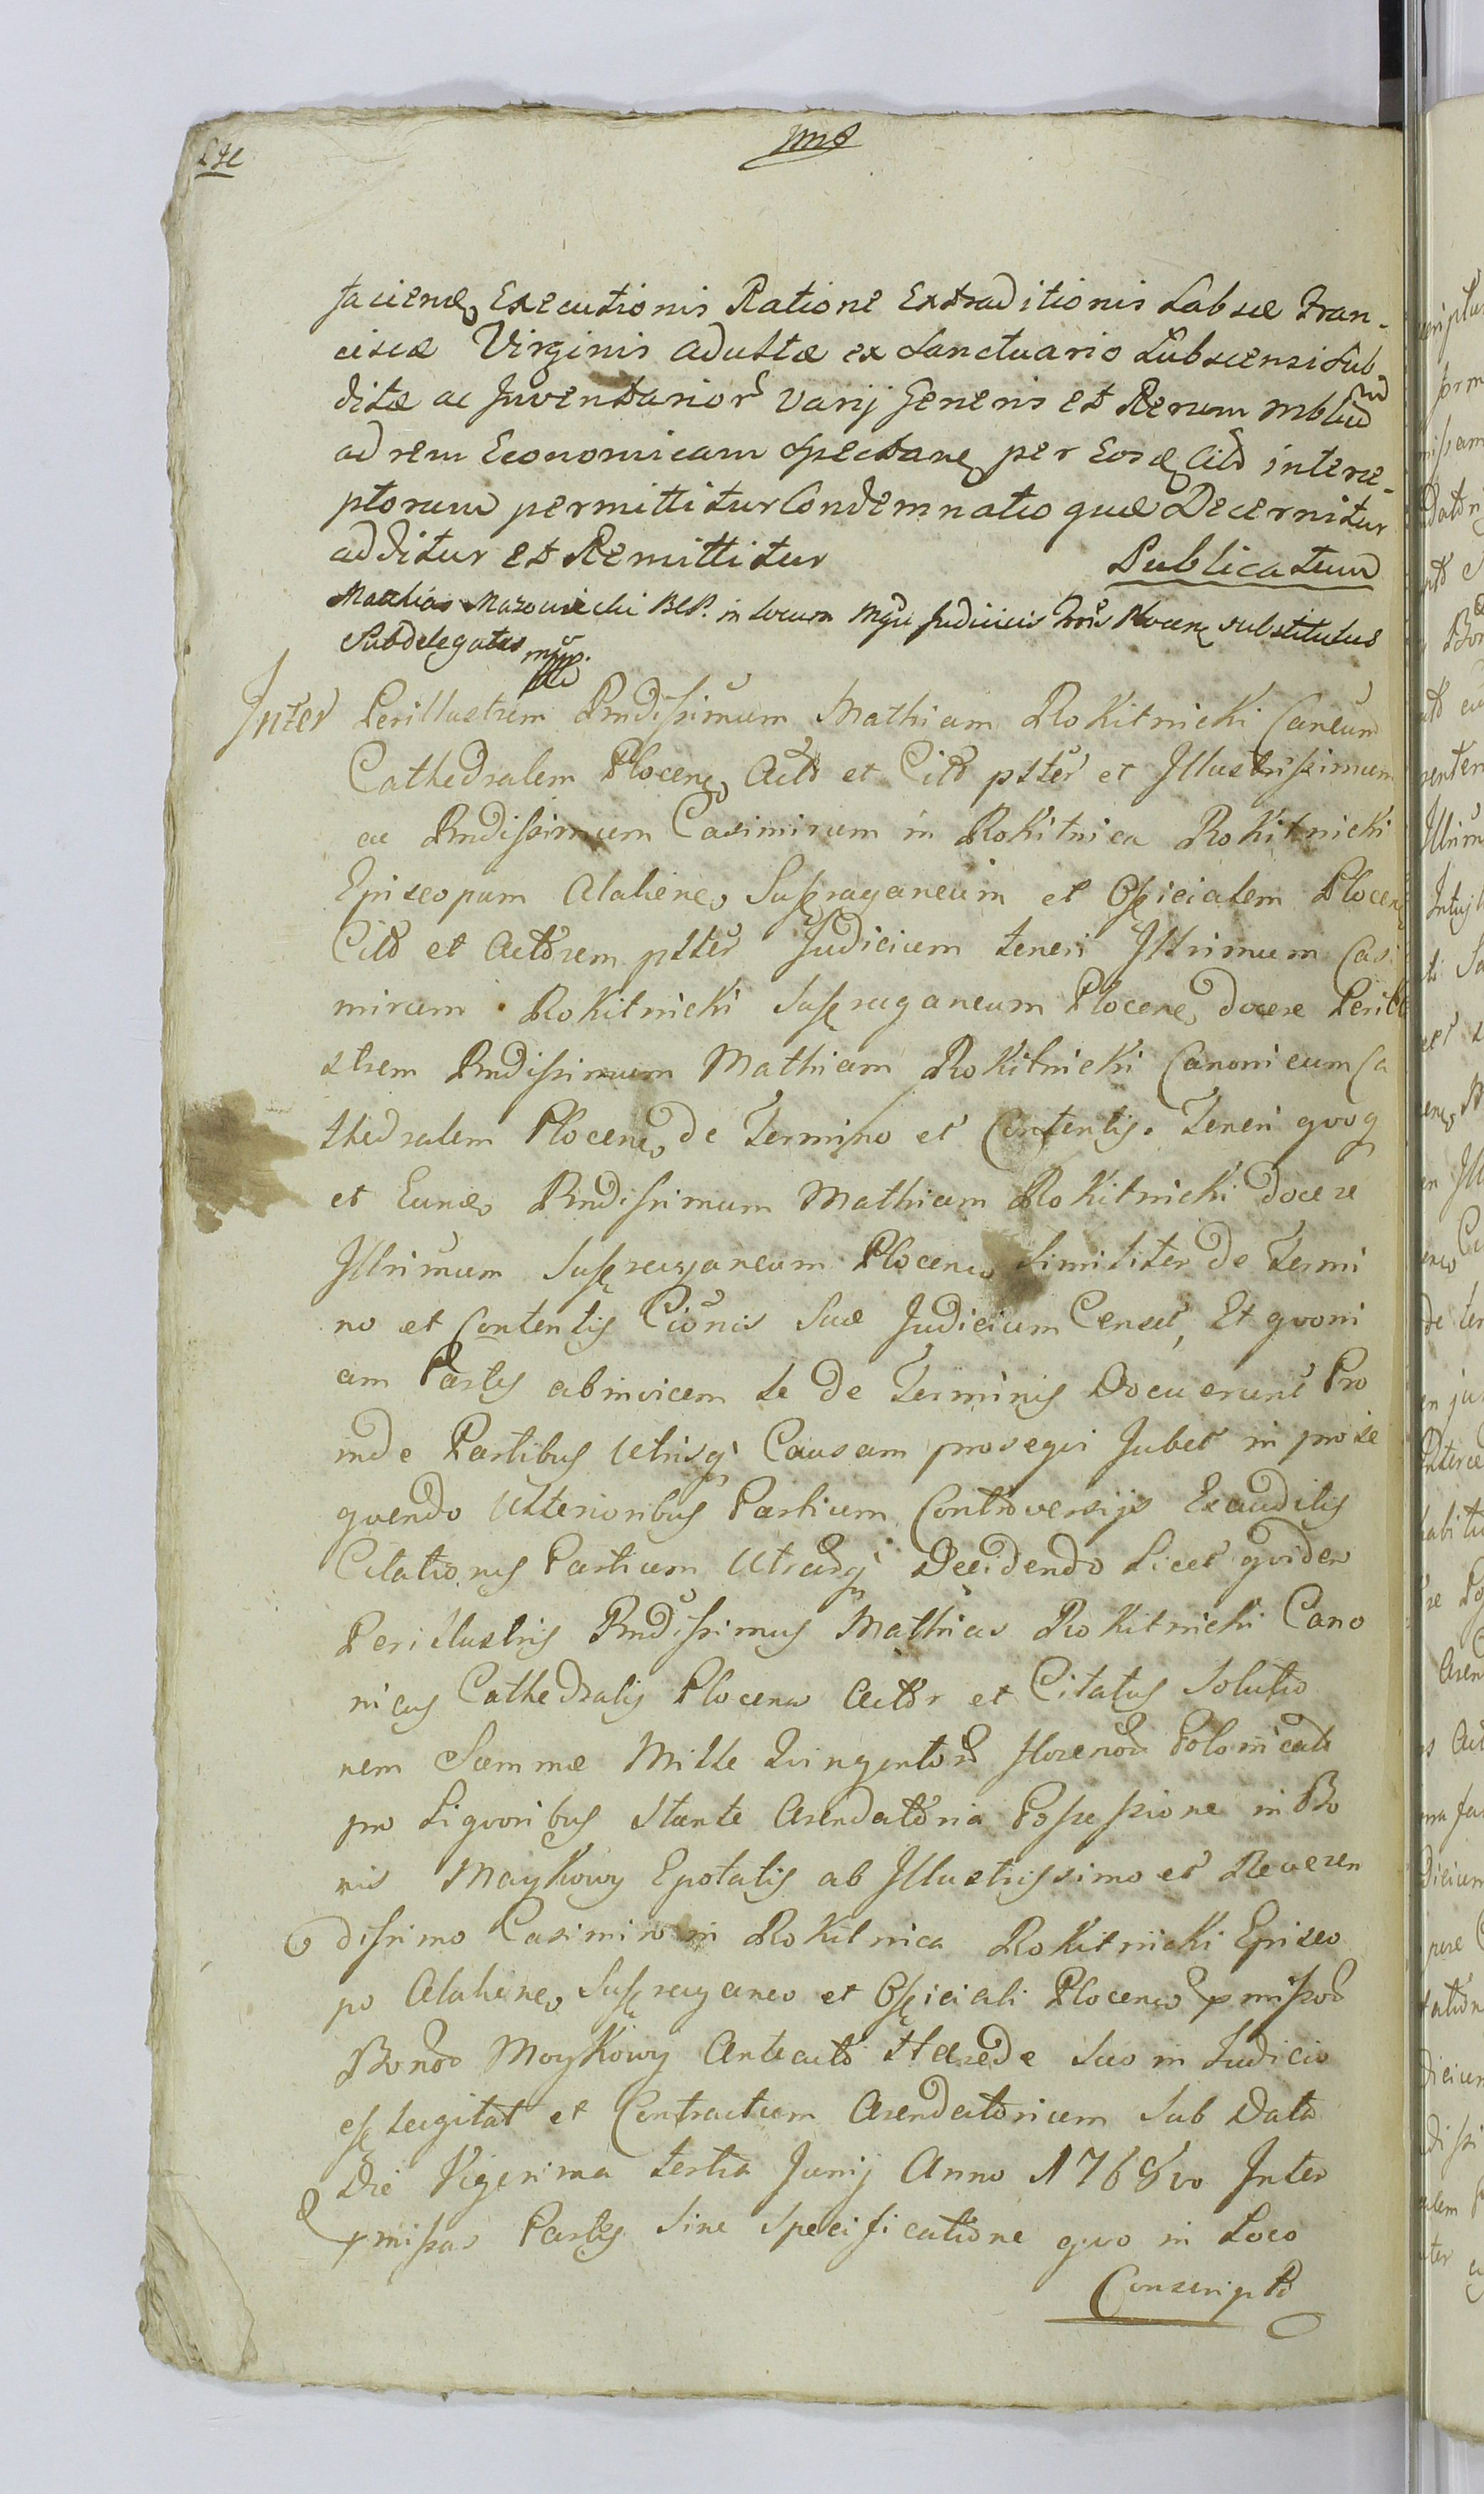 faciend Executionis Ratione Extraditionis Labsæ Fran-
ciscæ Virginis adultæ ex Sanctuario Lubscensi Sub
ditæ ac Inventarior Varij Generis et Rerum mblium
ad rem Economicam Spectan per Eosd Citt interce-
ptorum permittitur Condemnatio quæ Decernitur
additur et Remittitur Publicatum
Mathias Mazowiecki BCP. in Locum Mgci Judicis Tris Plocen substitutus
Subdelegatus mpp.
Inter Perillustrem Rndissimum Mathiam Rokitnicki Caneum
Cathedralem Plocen, Act et Citt ptter et Illustrissimum
ac Rndissimum Casimirum in Rokitnica Rokitnicki
Episcopum Alalien, Suffraganeum et Officialem Plocen
Citt et Actorem ptter Judicium teneri Illrimum Casi
mirum Rokitnicki Suffraganeum Plocen, docere Perillu
strem Rndissimum Mathiam Rokitnicki Canonicum Ca
thedralem Plocen, de Termino et Contentis. Teneri quoq
et Eund, Rndissimum Mathiam Rokitnicki docere
Illrimum Suffraganeum Plocen, Similiter de Termi
no et Contentis Cionis Suæ Judicium Censet, Et quoni
am Partes ab invicem se de Terminis Docuerunt Pro
inde Partibus Utrisq Causam prosequi Jubet in prose
quendo Ulterioribus Partium Controversijs Exauditis
Citationes Partium Utrarq Decidendo Licet quidem
Perillustris Rndissimus Mathias Rokitnicki Cano
nicus Cathedralis Plocen Actor et Citatus Solutio
nem Summæ Mille Quingentor florenor Polonical
pro Liquoribus Stante Arendatoria Possessione in Bo
nis Maykowy Epotatis ab Illustrissimo et Reveren
dissimo Casimiro in Rokitnica Rokitnicki Episco
po Alalien, Suffraganeo et Officiali Plocen pmissor
Bonor Maykowy Anteacto Hærede Suo in Judicio
efflagitat et Contractum Arendatorium Sub Data
Die Vigesima tertia Junij Anno 1768vo Inter
pmissas Partes Sine Specificatione quo in Loco
Conscripto